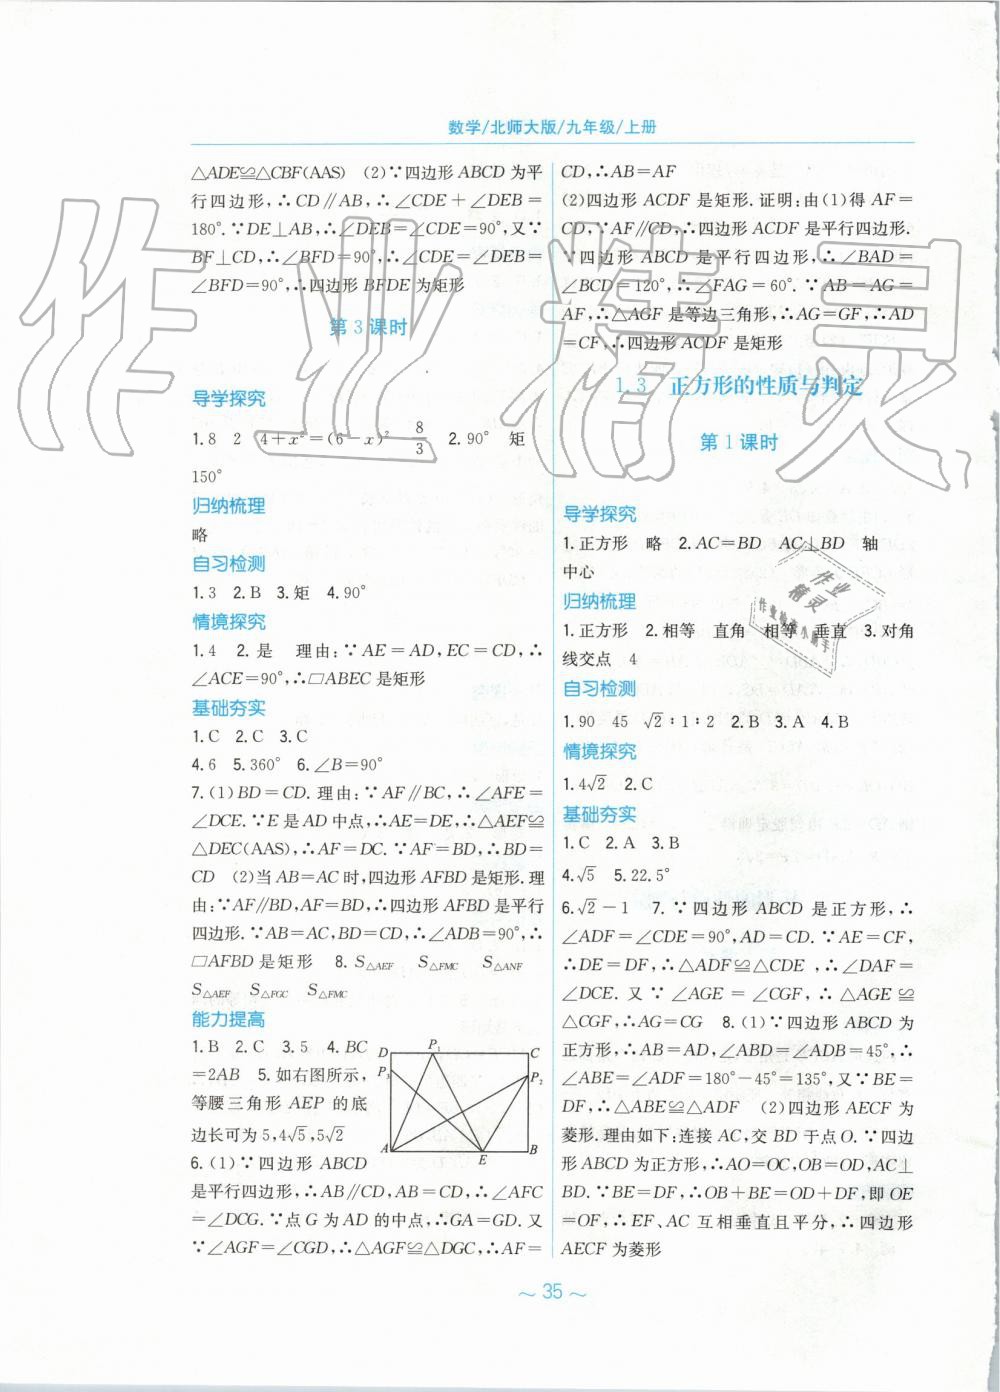 数学/北师大版/九年级/上册
△ADE≌△CBF(AAS) (2)∵四边形 ABCD 为平
行四边形,∴CD∥AB,∴∠CDE+∠DEB=
180°.∵DE⊥AB,∴∠DEB=∠CDE=90°,又∵
BF⊥CD,∴∠BFD=90°,∴∠CDE=∠DEB=
∠BFD=90°,∴四边形 BFDE 为矩形
第 3 课时
导学探究
1.8 2 4+x²=(6-x)² 8/3 2.90° 矩
150°
归纳梳理
略
自习检测
1.3 2.B 3.矩 4.90°
情境探究
1.4 2.是 理由:∵AE=AD,EC=CD,∴
∠ACE=90°,∴□ABEC 是矩形
基础夯实
1.C 2.C 3.C
4.6 5.360° 6.∠B=90°
7.(1)BD=CD.理由:∵AF∥BC,∴∠AFE=
∠DCE.∵E 是 AD 中点,∴AE=DE,∴△AEF≌
△DEC(AAS),∴AF=DC.∵AF=BD,∴BD=
CD (2)当 AB=AC 时,四边形 AFBD 是矩形.理
由:∵AF∥BD,AF=BD,∴四边形 AFBD 是平行
四边形.∵AB=AC,BD=CD,∴∠ADB=90°,∴
□AFBD 是矩形 8.S△AEF S△FMC S△ANF
S△AEF S△FGC S△FMC
能力提高
1.B 2.C 3.5 4.BC
=2AB 5.如右图所示,
等腰三角形 AEP 的底
边长可为 5,4√5,5√2
D P₁ C
P₃ P₂
A E B
6.(1)∵四边形 ABCD
是平行四边形,∴AB∥CD,AB=CD,∴∠AFC
=∠DCG.∵点 G 为 AD 的中点,∴GA=GD.又
∵∠AGF=∠CGD,∴△AGF≌△DGC,∴AF=
CD,∴AB=AF
(2)四边形 ACDF 是矩形.证明:由(1)得 AF=
CD,∵AF∥CD,∴四边形 ACDF 是平行四边形.
∵四边形 ABCD 是平行四边形,∴∠BAD=
∠BCD=120°,∴∠FAG=60°.∵AB=AG=
AF,∴△AGF 是等边三角形,∴AG=GF,∴AD
=CF,∴四边形 ACDF 是矩形
1.3 正方形的性质与判定
第 1 课时
导学探究
1.正方形 略 2.AC=BD AC⊥BD 轴
中心
归纳梳理
1.正方形 2.相等 直角 相等 垂直 3.对角
线交点 4
自习检测
1.90 45 √2∶1∶2 2.B 3.A 4.B
情境探究
1.4√2 2.C
基础夯实
1.C 2.A 3.B
4.√5 5.22.5°
6.√2-1 7.∵四边形 ABCD 是正方形,∴
∠ADF=∠CDE=90°,AD=CD.∵AE=CF,
∴DE=DF,∴△ADF≌△CDE,∴∠DAF=
∠DCE.又∵∠AGE=∠CGF,∴△AGE≌
△CGF,∴AG=CG 8.(1)∵四边形 ABCD 为
正方形,∴AB=AD,∠ABD=∠ADB=45°,∴
∠ABE=∠ADF=180°-45°=135°,又∵BE=
DF,∴△ABE≌△ADF (2)四边形 AECF 为
菱形.理由如下:连接 AC,交 BD 于点 O.∵四边
形 ABCD 为正方形,∴AO=OC,OB=OD,AC⊥
BD.∵BE=DF,∴OB+BE=OD+DF,即 OE
=OF,∴EF、AC 互相垂直且平分,∴四边形
AECF 为菱形
~ 35 ~
作业精灵
作业
精灵